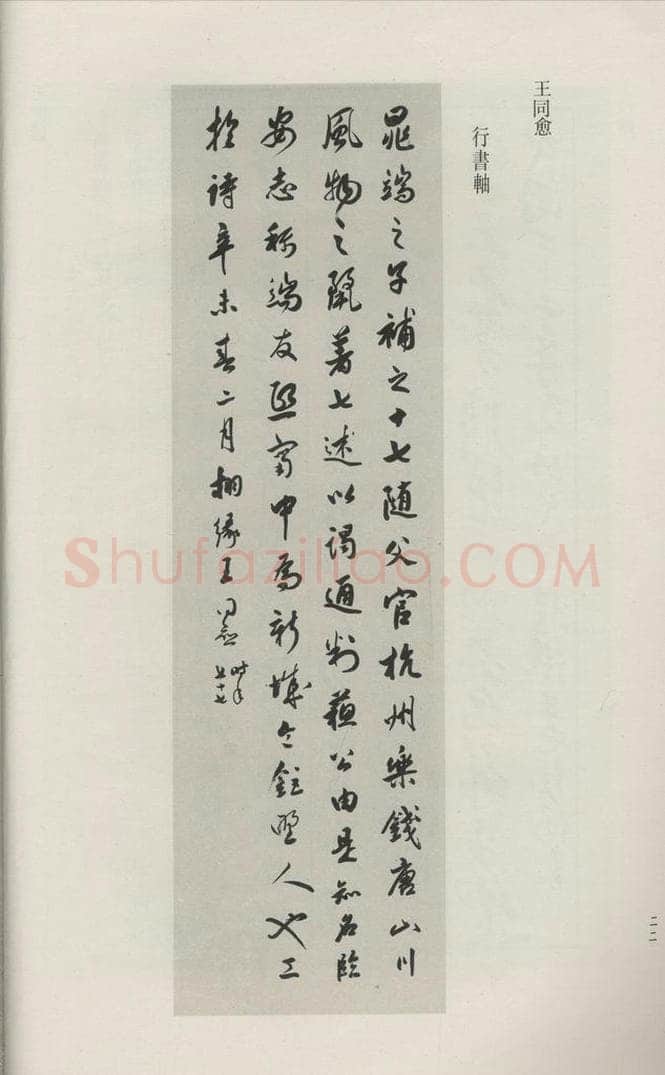 王同愈
行書軸
晁端之子補之十七隨父官杭州樂錢唐山川
風物之麗著七述以謁通判蘇公由是知名臨
安志稱端友熙寧中為新城令鉅野人也工
於詩辛未春二月栩緣王同愈
時年
七十七
二二
Shufaziliao.COM